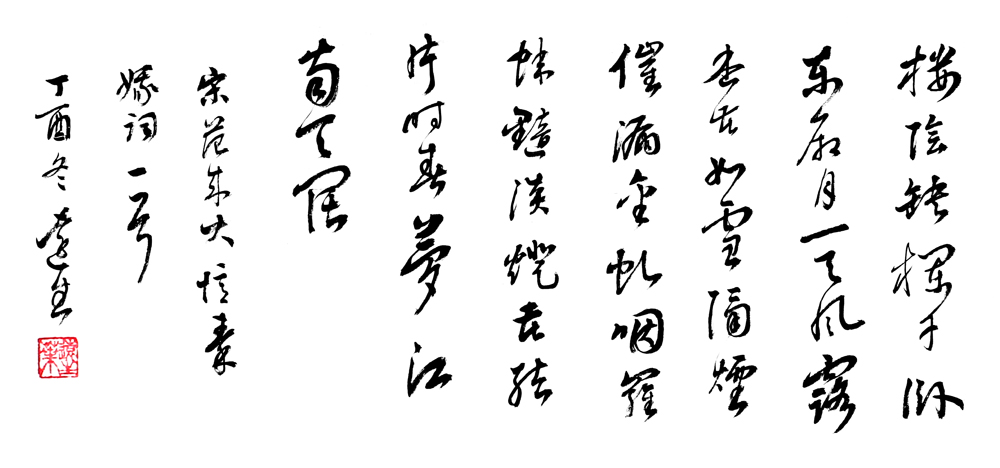 楼陰缺栏干卧
东厢月一天风露
杏花如雪隔煙
催漏金虬咽羅
帏黯淡燈花结
片时春夢江
南天阔
宋范成大憶秦
娥词一首
丁酉冬